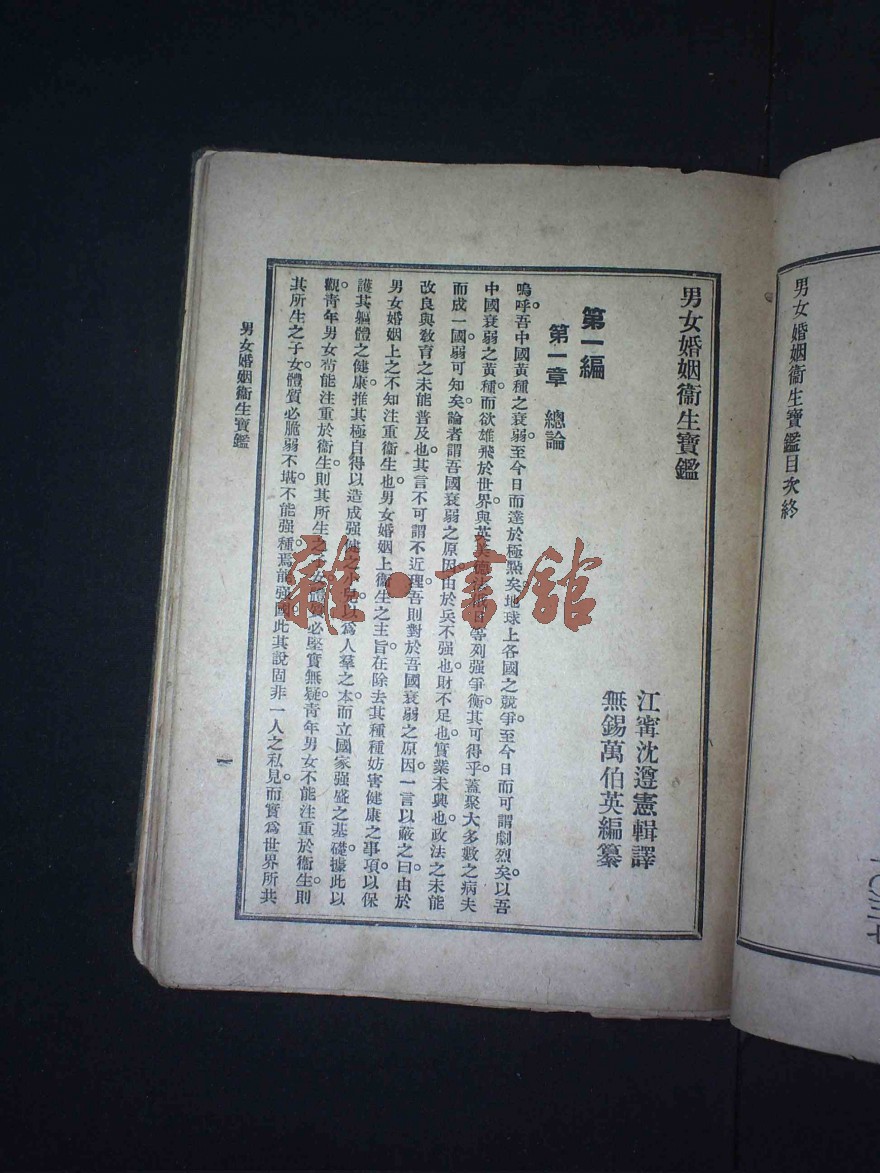 男女婚姻衞生寶鑑目次終
男女婚姻衞生寶鑑
江寗沈遵憲輯譯
無錫萬伯英編纂
第一編
第一章　總論
嗚呼。吾中國黃種之衰弱。至今日而達於極點矣。地球上各國之競爭。至今日而可謂劇烈矣。以吾
中國衰弱之黃種。而欲雄飛於世界。與英美德法俄日等列强爭衡。其可得乎。蓋聚大多數之病夫
而成一國。弱可知矣。論者謂吾國衰弱之原因。由於兵不强也。財不足也。實業未興也。政法之未能
改良與敎育之未能普及也。其言不可謂不近理。吾則對於吾國衰弱之原因。一言以蔽之曰。由於
男女婚姻上之不知注重衞生也。男女婚姻上衞生之主旨。在除去其種種妨害健康之事項。以保
護其軀體之健康。推其極自得以造成强健之小兒。以爲人羣之本。而立國家强盛之基礎。據此以
觀。靑年男女苟能注重於衞生。則其所生之子女。體質必堅實無疑。靑年男女不能注重於衞生。則
其所生之子女。體質必脆弱不堪。不能强種。焉能强國。此其說固非一人之私見。而實爲世界所共
男女婚姻衞生寶鑑
一
雜·書館